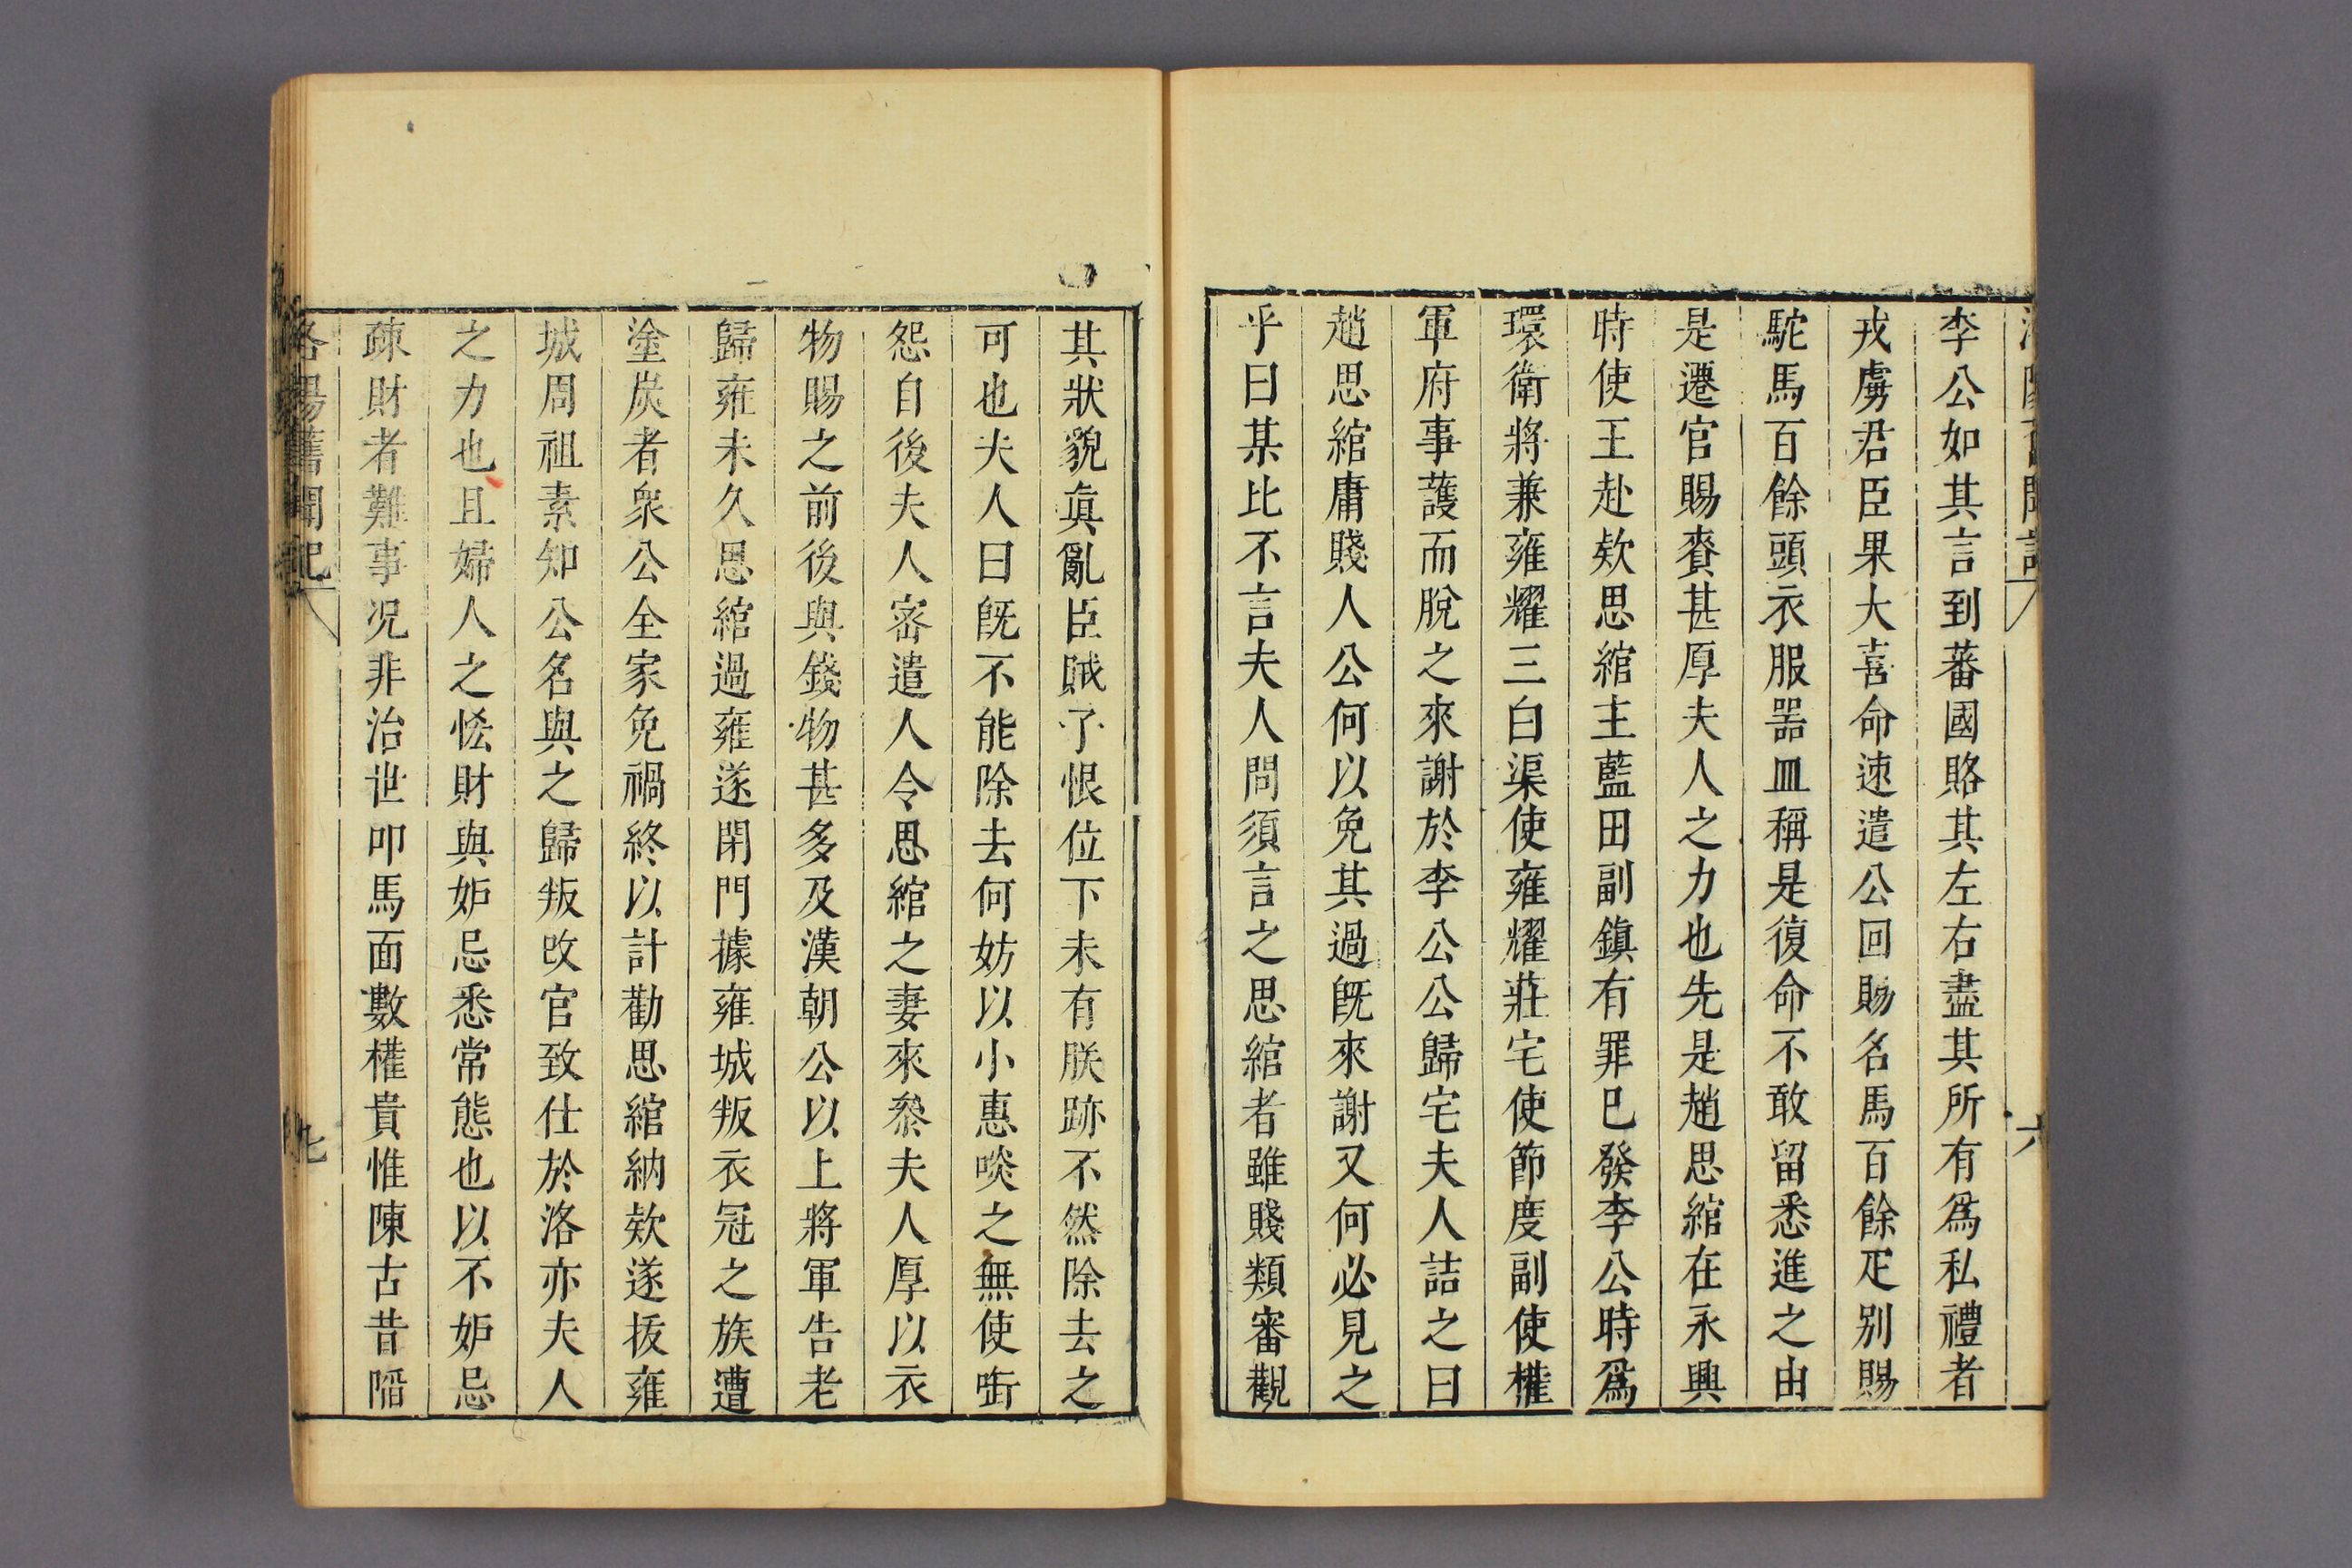 李公如其言到蕃國賂其左右盡其所有爲私禮者
戎虜君臣果大喜命速遣公回賜名馬百餘疋别賜
駝馬百餘頭衣服噐皿稱是復命不敢留悉進之由
是遷官賜賚甚厚夫人之力也先是趙思綰在永興
時使王赴欵思綰主藍田副鎮有罪巳發李公時爲
環衛將兼雍耀三白渠使雍耀莊宅使節度副使權
軍府事護而脫之來謝於李公公歸宅夫人詰之曰
趙思綰庸賤人公何以免其過旣來謝又何必見之
乎曰某比不言夫人問須言之思綰者雖賤類審觀
其狀貌眞亂臣賊子恨位下未有朕跡不然除去之
可也夫人曰旣不能除去何妨以小惠啖之無使銜
怨自後夫人密遣人令思綰之妻來叅夫人厚以衣
物賜之前後與錢物甚多及漢朝公以上將軍告老
歸雍未久思綰過雍遂閉門據雍城叛衣冠之族遭
塗炭者衆公全家免禍終以計勸思綰納欵遂拔雍
城周祖素知公名與之歸叛改官致仕於洛亦夫人
之力也且婦人之恡財與妒忌悉常態也以不妒忌
疎財者難事况非治世叩馬面數權貴惟陳古昔陻
洛陽舊聞記一
七